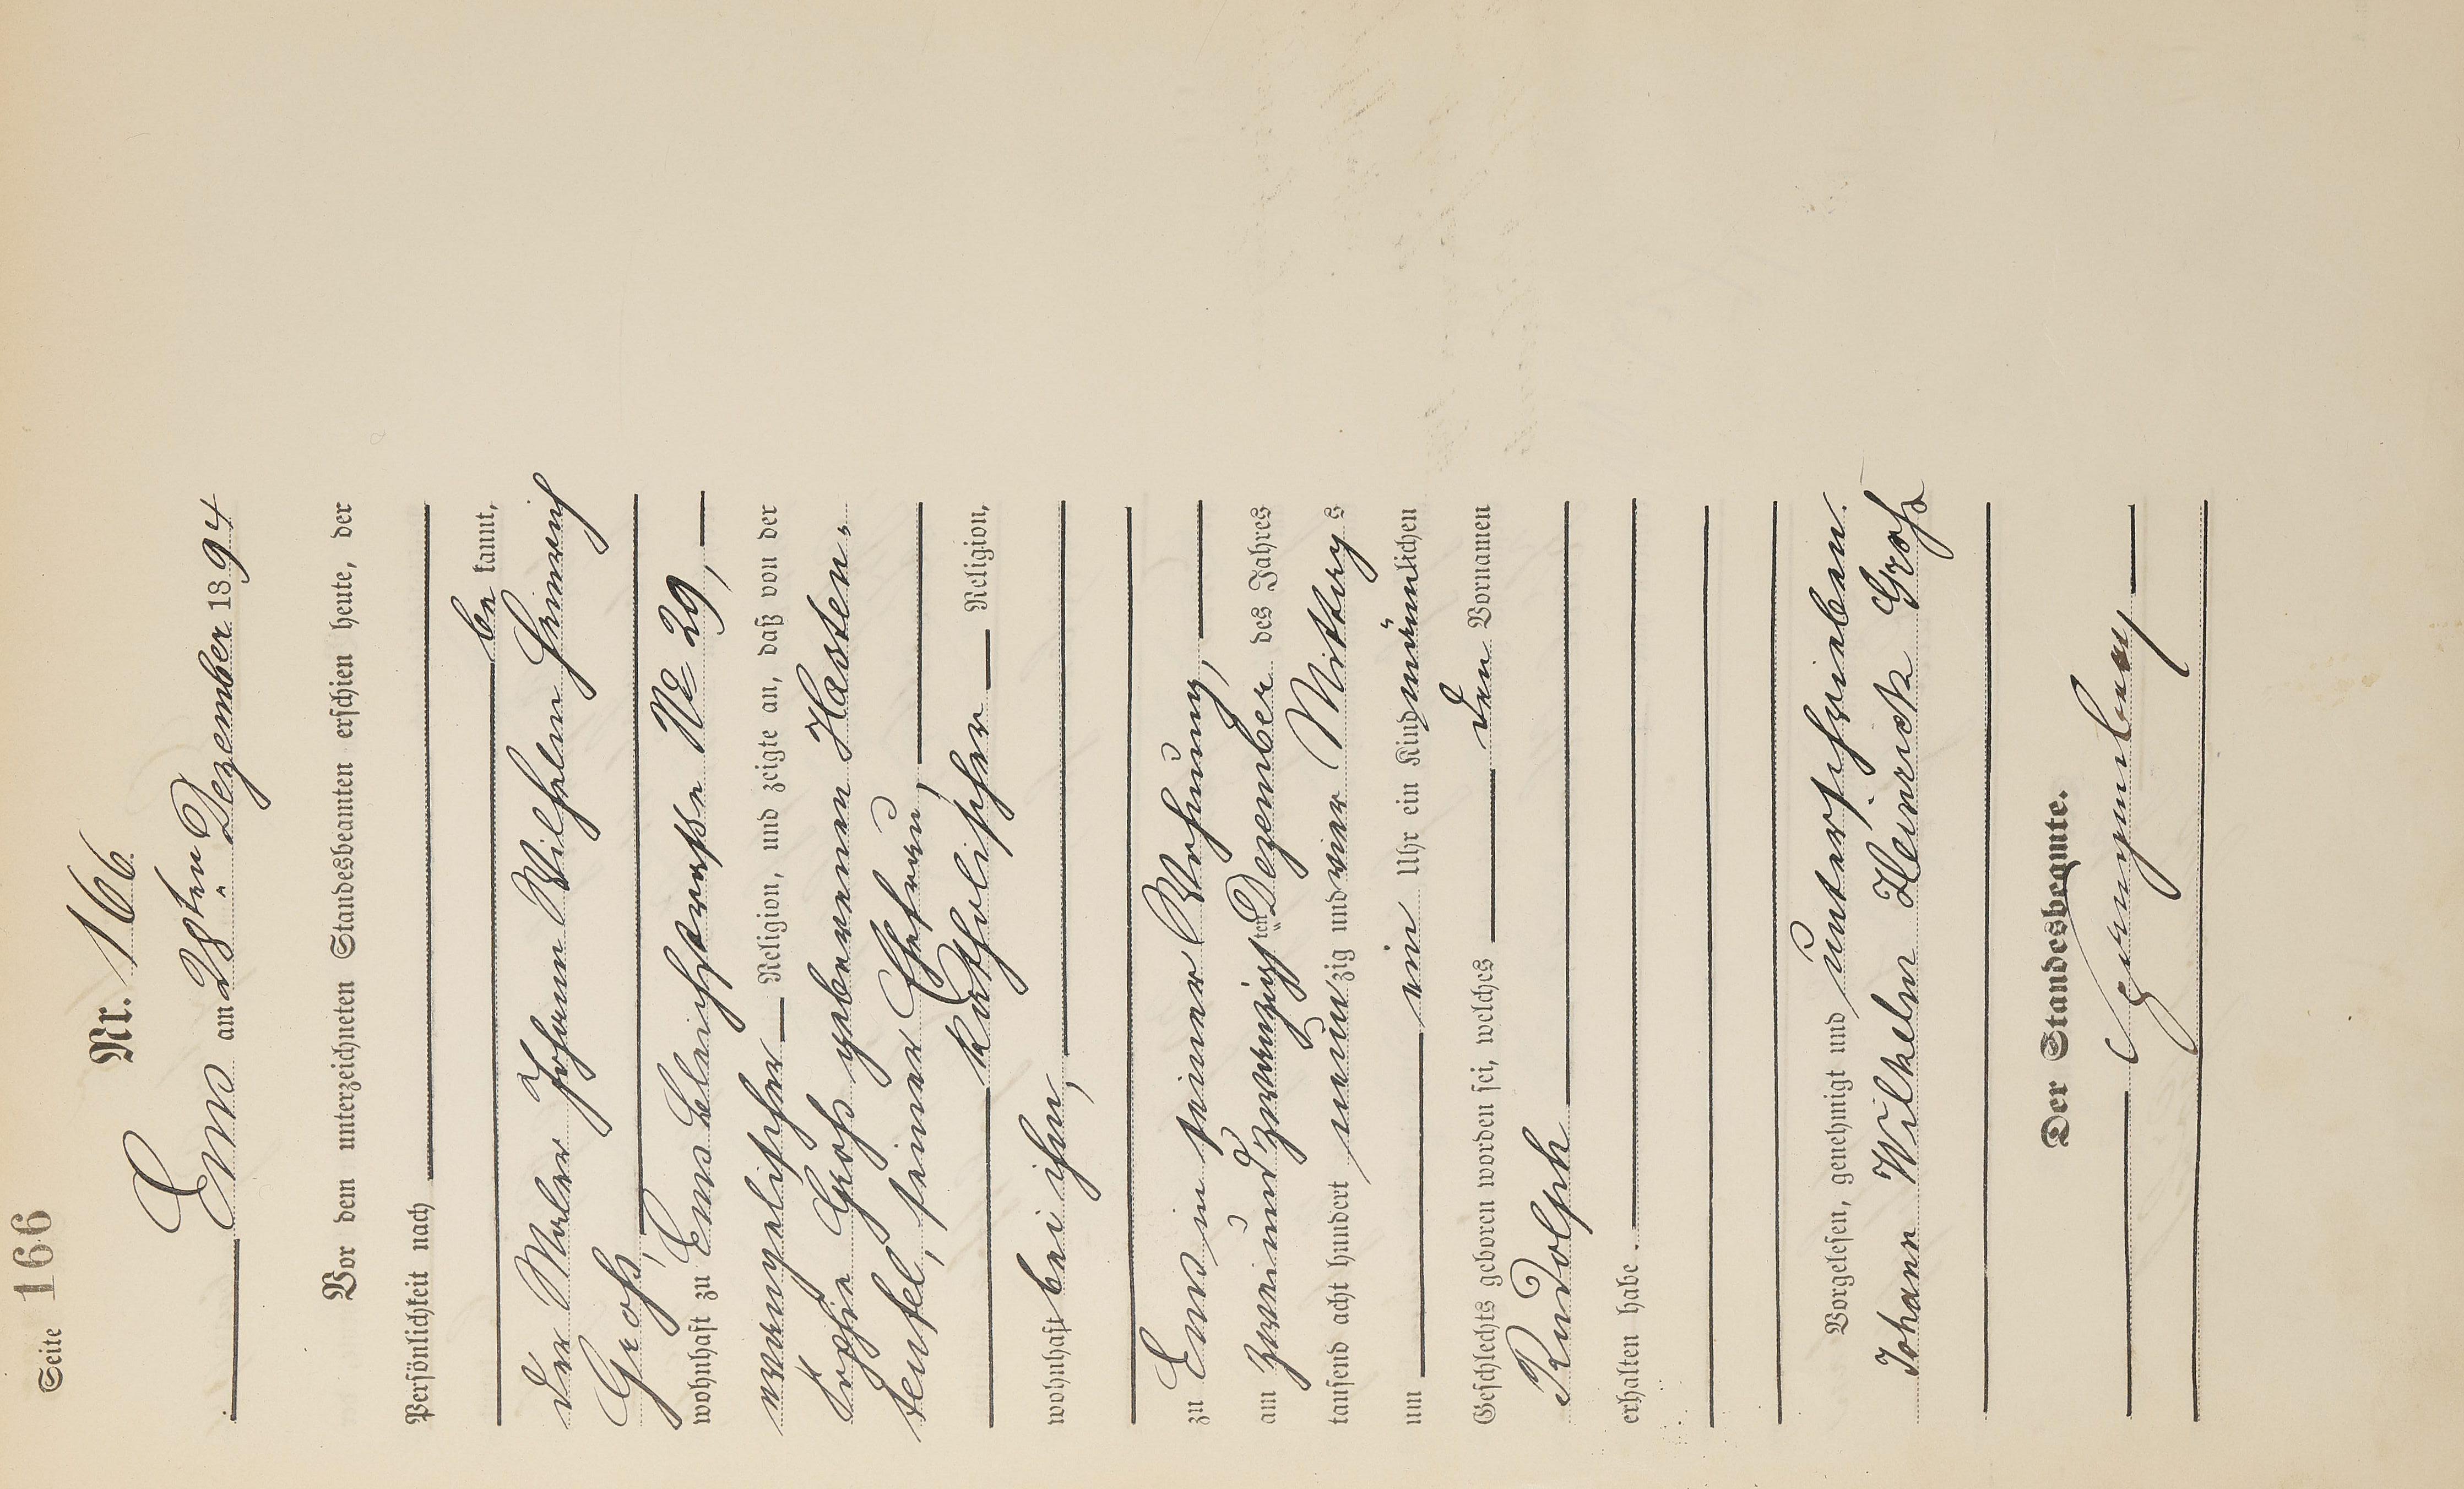 Seite 166
Nr. 166.
Ems am 28ten Dezember 1894
Vor dem unterzeichneten Standesbeamten erschien heute, der
Persönlichkeit nach
be kannt,
der Maler Johann Wilhelm Heinrich
Groß,
wohnhaft zu Ems Bleichstraße No 29,
evangelischer Religion, und zeigte an, daß von der
Sophie Groß geborenen Hasten-
teufel, seiner Ehefrau,
katholischer Religion,
wohnhaft bei ihm,
zu Ems in seiner Wohnung,
am zweiundzwanzigsten Dezember des Jahres
tausend acht hundert neunzig und vier Mittags
um ein Uhr ein Kind männlichen
Geschlechts geboren worden sei, welches den Vornamen
Rudolph
erhalten habe.
Vorgelesen, genehmigt und unterschrieben.
Johann Wilhelm Heinrich Groß
Der Standesbeamte.